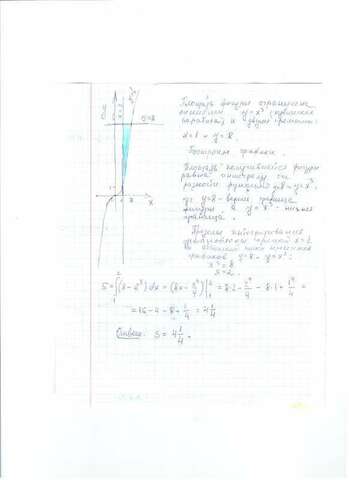 Площадь фигуры ограничена
линиями y = x³ (кубическая
парабола) и двумя прямыми:
x = 1 и y = 8.
Построим графики.
y = 8
x
Площадь получившейся фигуры
равна интегралу от
разности функций y = 8 и y = x³,
где y = 8 - верхняя граница
фигуры, а y = x³ - нижняя
граница.
Пределы интегрирования
x = 1
графиков y = 8 и y = x³:
x³ = 8
x = 2.
S = ∫₁² (8 - x³) dx = (8x - x⁴/4) |₁² = 8·2 - 2⁴/4 - 8·1 + 1⁴/4 =
= 16 - 4 - 8 + 1/4 = 4 1/4
Ответ: S = 4 1/4.